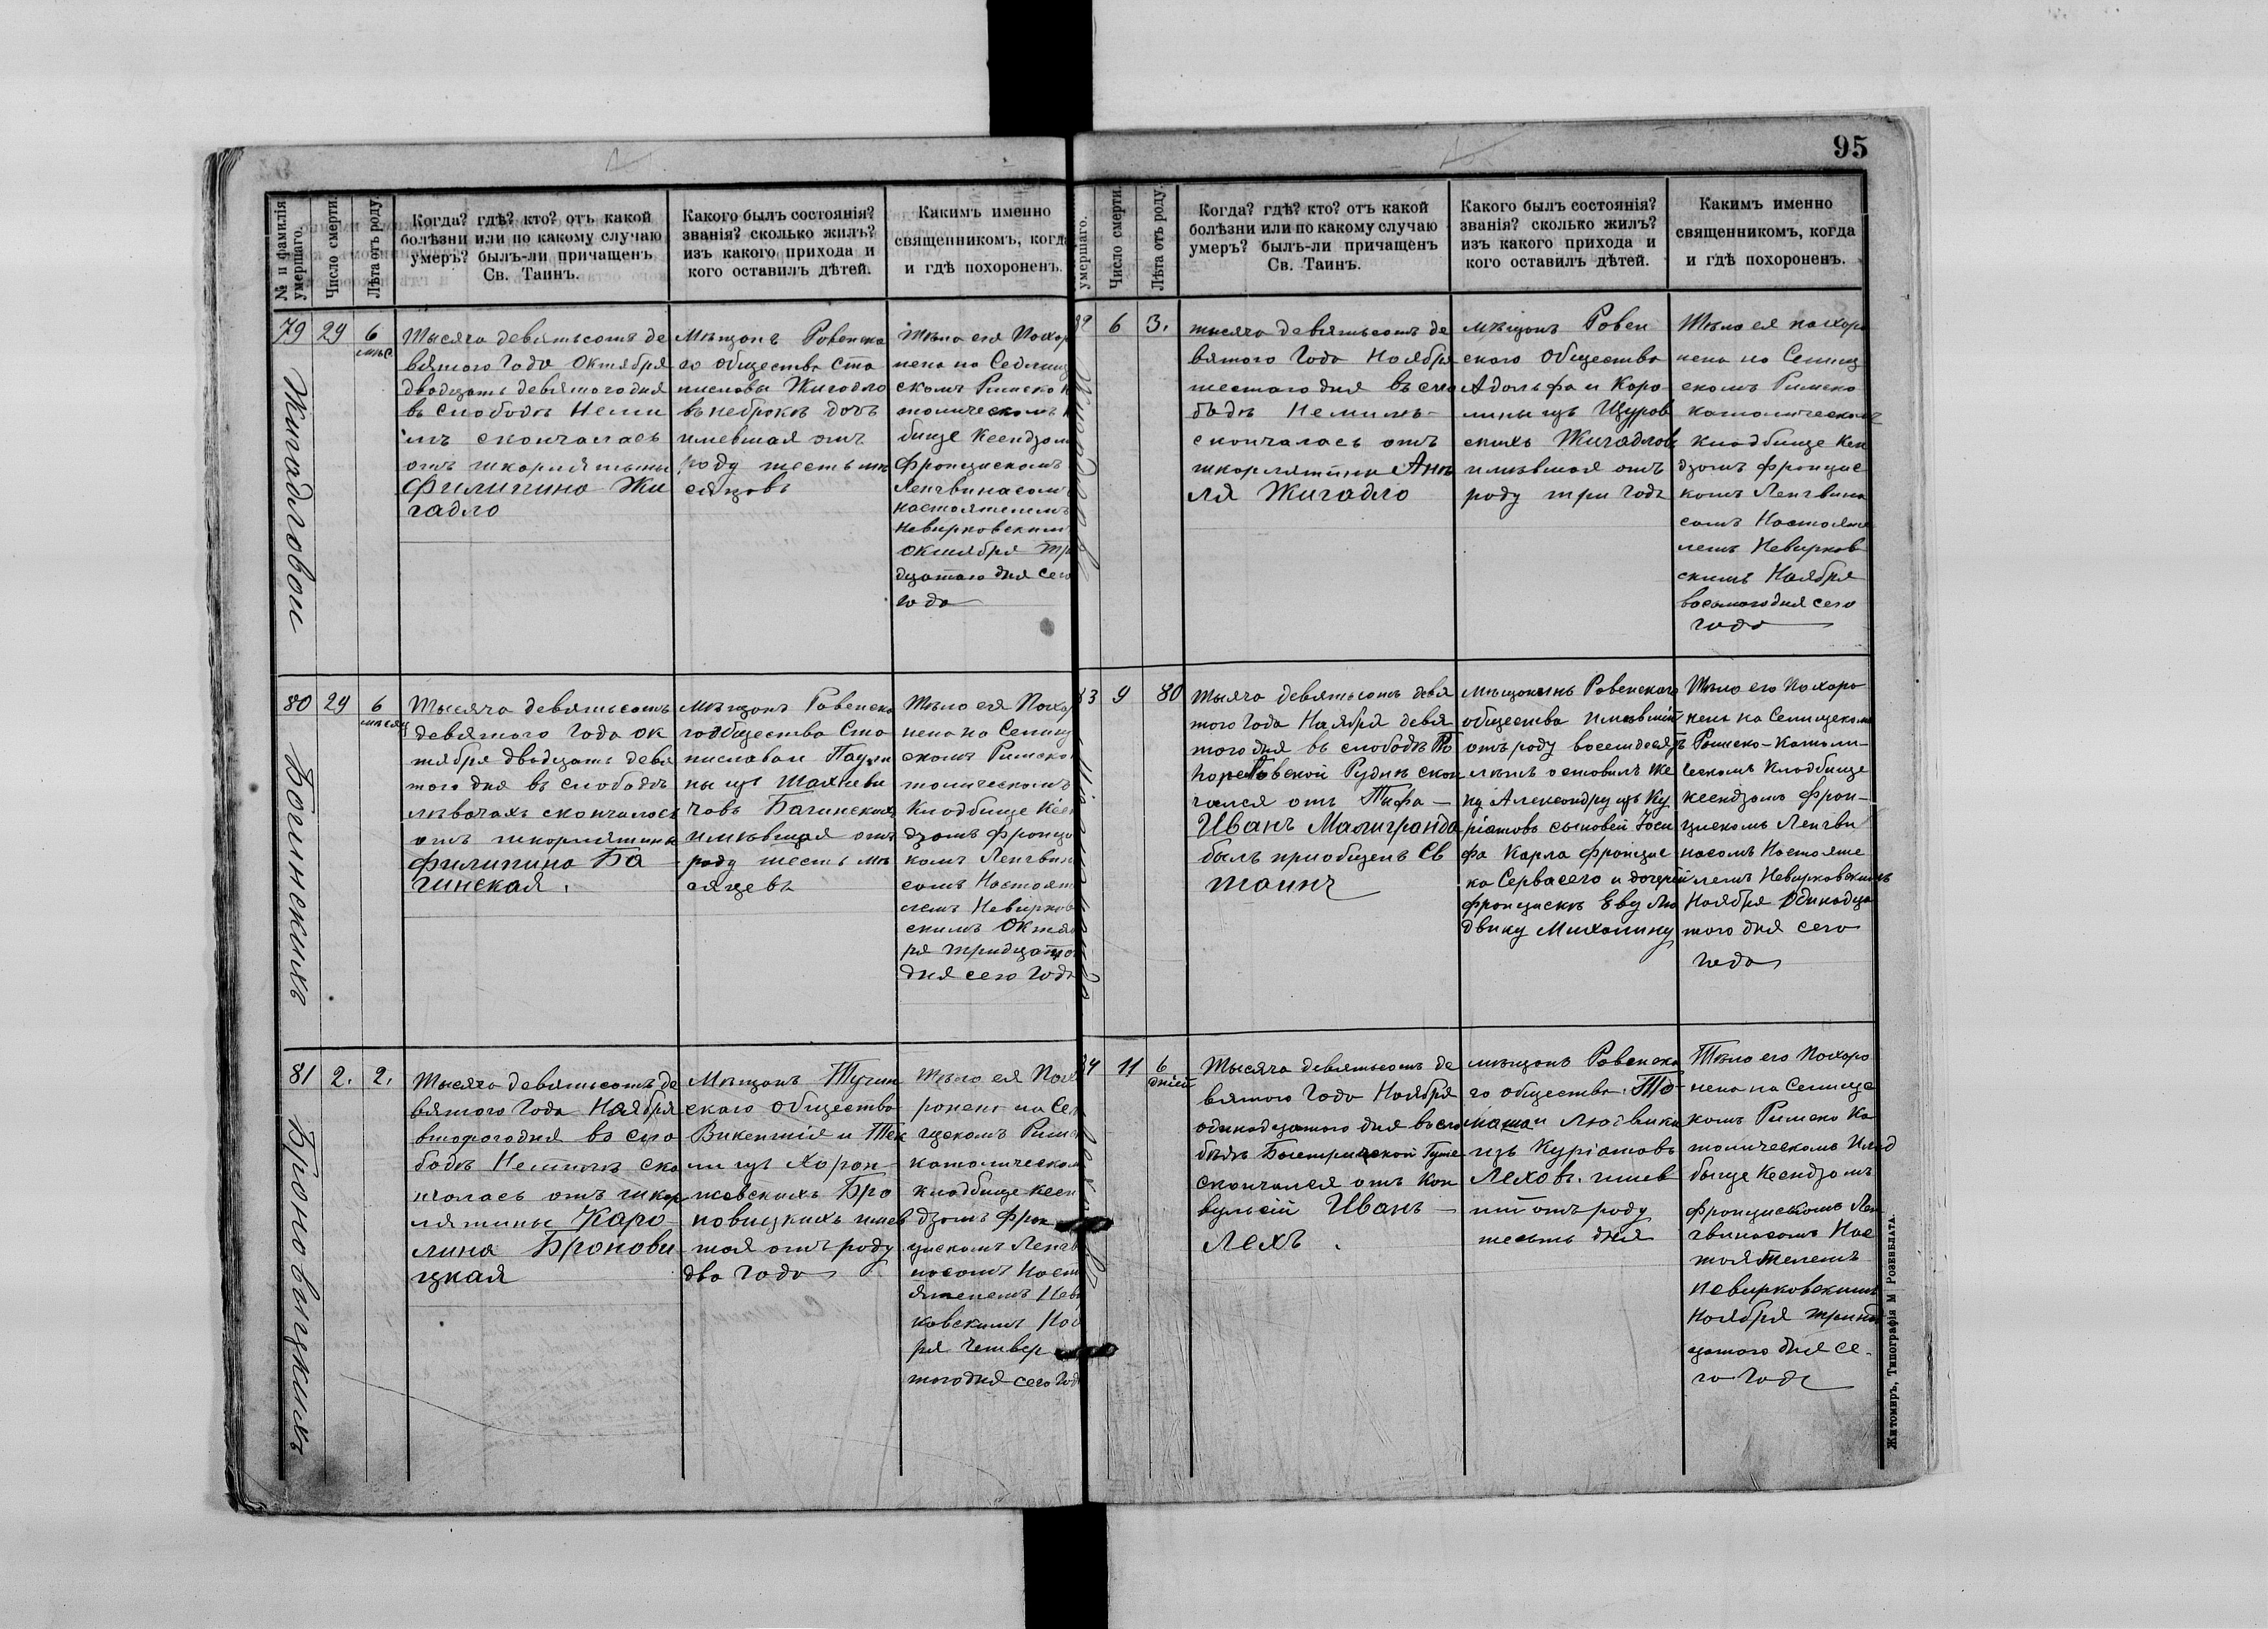 95
№ и фамилія умершаго.
Число смерти.
Лѣта отъ роду.
Когда? гдѣ? кто? отъ какой
болѣзни или по какому случаю
умеръ? былъ-ли причащенъ
Св. Таинъ.
Какого былъ состоянія?
званія? сколько жилъ?
изъ какого прихода и
кого оставилъ дѣтей.
Какимъ именно
священникомъ, когда
и гдѣ похороненъ.
79
29
6
мѣс
Тысяча девятьсотъ де
вятого Года Октября
двадцать девятого дня
въ слободѣ Неми
скончалась
отъ шкорлятины
Филипина Жи
гадло
Мѣщанъ Ровенска
го общества Ста
нислава Жигадло
дочь
имевшая отъ
роду шесть мѣ
сяцовъ
Тѣло ея Похор
нена на
скомъ Римско к
толическомъ к
бище Ксендзом
Францискомъ
Ленгвинасом
настоятелемъ
Невирковским
Октября тр
дцатаго дня сего
года
80
29
6
мѣсяц
Тысяча девятьсотъ
девятого Года Ок
тября двадцать девя
того дня въ слободѣ
Лѣвачахъ скончалась
отъ шкорлятины
Филипина Ба
гинская.
Мѣщанъ Ровенска
го общества Ста
нислава и Паули
ны изъ
Багинскихъ
имѣвшая отъ
роду шесть мѣ
сяцевъ
Тѣло ея Похор
нена на Селищ
скомъ Римско
толическомъ
Кладбище Ксен
дзомъ Францис
комъ Ленгвин
сомъ Настоят
лемъ Невирков
скимъ Октяб
ря тридцатог
дня сего Года
Багинскихъ
81
2.
2.
Тысяча девятьсотъ де
вятого Года Ноября
второго дня въ сло
бодѣ Немилѣ ско
нчалась отъ шкар
лятины Каро
лина Бронови
цкая
Мѣщанъ Тучин
скаго общества
Викентія и Тек
ли изъ Хорон
жевскихъ Бро
новицкихъ имев
шая отъ роду
два года
Тѣло ея Пох
ронена на Сел
щскомъ Римс
католическом
кладбище ксен
дзомъ Фран
цискомъ Ленгв
насомъ Наст
ятелемъ Неви
ковскимъ Ноя
ря Четвер
того дня сего Года
Броновицкихъ
82
6
3.
тысяча девятьсотъ де
вятого Года Ноября
шестого дня въ сло
бодѣ Немилѣ
скончалась отъ
шкорлятины Анѣ
ля Жигадло
мѣщанъ Ровен
скаго Общества
Адольфа и Каро
лины изъ Щуров
скихъ Жигадловъ
имѣвшая отъ
роду три года
Тѣло ея похоро
нена на Селищ
скомъ Римско
католическомъ
кладбище Ксен
дзомъ Францис
комъ Ленгвина
сомъ Настояте
лемъ Невирков
скимъ Ноября
восьмого дня сего
года
83
9
80
Тысяча девятьсотъ девя
того Года Ноября девя
того дня въ слободѣ
Рудни скон
чался отъ Тыфа
Иванъ Малигранда
былъ приобщенъ Св
таинъ
Мѣщанинъ Ровенскаго
общества имѣвшій
отъ роду восемдесятъ
лѣтъ оставилъ же
ну Александру изъ Ку
ріатовъ сыновей Іоси
фа Карла Францис
ка Сервасего и дочерей
Францискѣ Еву Лю
двику Михалину
Тѣло его Похоро
нено на Селищскомъ
Римско-Католи-
ческомъ Кладбище
ксендзомъ Фран-
цискомъ Ленгви
насомъ Настояте
лемъ Невирковскимъ
Ноября Одинадца
того дня сего
года
84
11
6
дній
Тысяча девятьсотъ де
вятого Года Ноября
одинадцатого дня въ сло
бодѣ Гутѣ
скончался отъ Кон
вульсій Иванъ
Лехъ.
мѣщанъ Ровенска
го общества. То
маша и Людвики
изъ Куріатовъ
Леховъ. имев
шій отъ роду
шесть дня
Тѣло его Похоро
нена на Селище
комъ Римско Ка
толическомъ Клад
бище Ксендзомъ
Францискомъ Лен
гвинасомъ Нас
тоятелемъ
Невирковскимъ
Ноября трина
цатого дня се-
го Года
Житомиръ, Типографія М Розенблата.